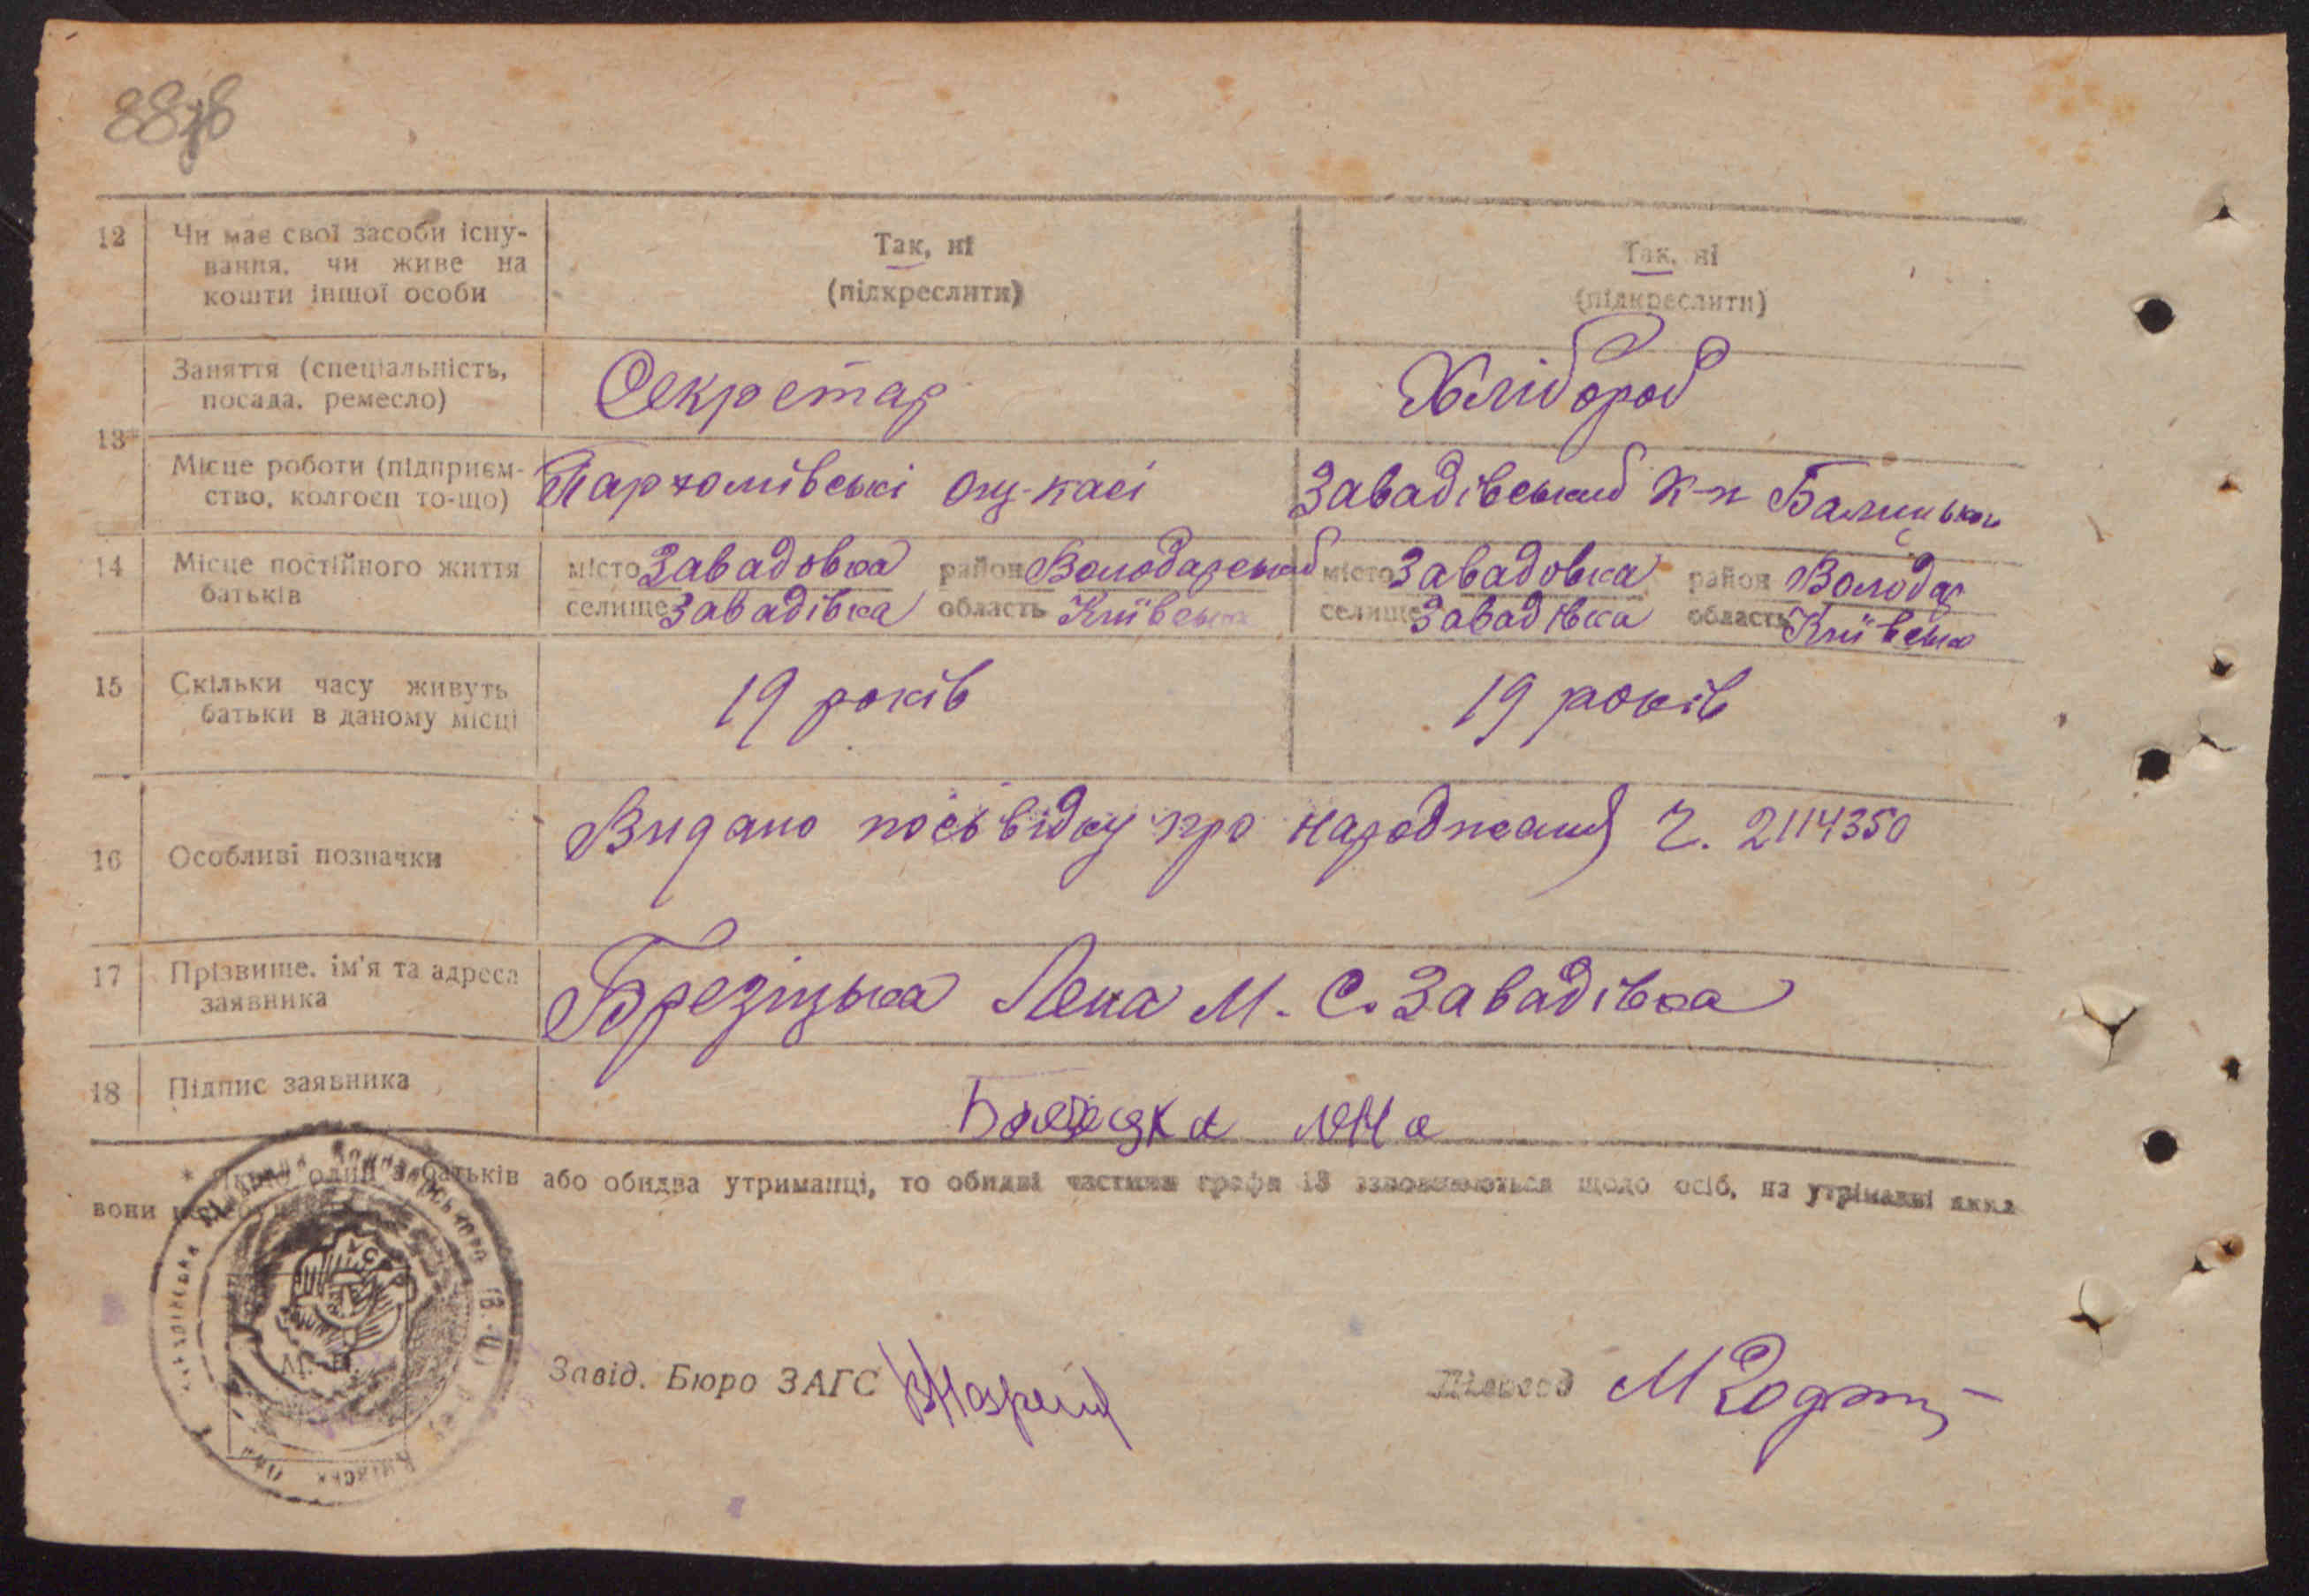 12 Чи має свої засоби існу-
вання, чи живе на
кошти іншої особи
Так, ні
(підкреслити)
Так, ні
(підкреслити)
13*
Заняття (спеціальність,
посада, ремесло)
Секретар
Хлібороб
Місце роботи (підприєм-
ство, колгосп то-що)
Пархомівські ощ-касі
Завадівський к-п
14 Місце постійного життя
батьків
місто Завадовка район Володарський
селище Завадівка область Київська
місто Завадовка район Володар
селище Завадівка область Київська
15 Скільки часу живуть
батьки в даному місці
19 років
19 років
16 Особливі позначки
Видано посьвідку про народження Ч. 2114350
17 Прізвище, ім'я та адреса
заявника
Брезіцька Лена М. С. Завадівка
18 Підпис заявника
* Якщо один з батьків або обидва утриманці, то обидві частини графи 13 заповнюються щодо осіб, на утріманні яких
вони
М. П.
Завід. Бюро ЗАГС